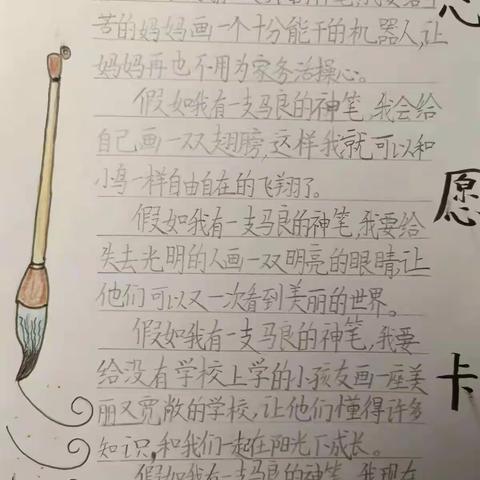 苦的妈妈画一个十分能干的机器人,让
妈妈再也不用为家务活操心。
假如我有一支马良的神笔,我会给
自己画一双翅膀,这样我就可以和
小鸟一样自由自在的飞翔了。
假如我有一支马良的神笔,我要给
失去光明的人画一双明亮的眼睛,让
他们可以又一次看到美丽的世界。
假如我有一支马良的神笔,我要
给没有学校上学的小孩友画一座美
丽又宽敞的学校,让他们懂得许多
知识,和我们一起在阳光下成长。
假如我有一支马良的神笔,我现在
心
愿
卡